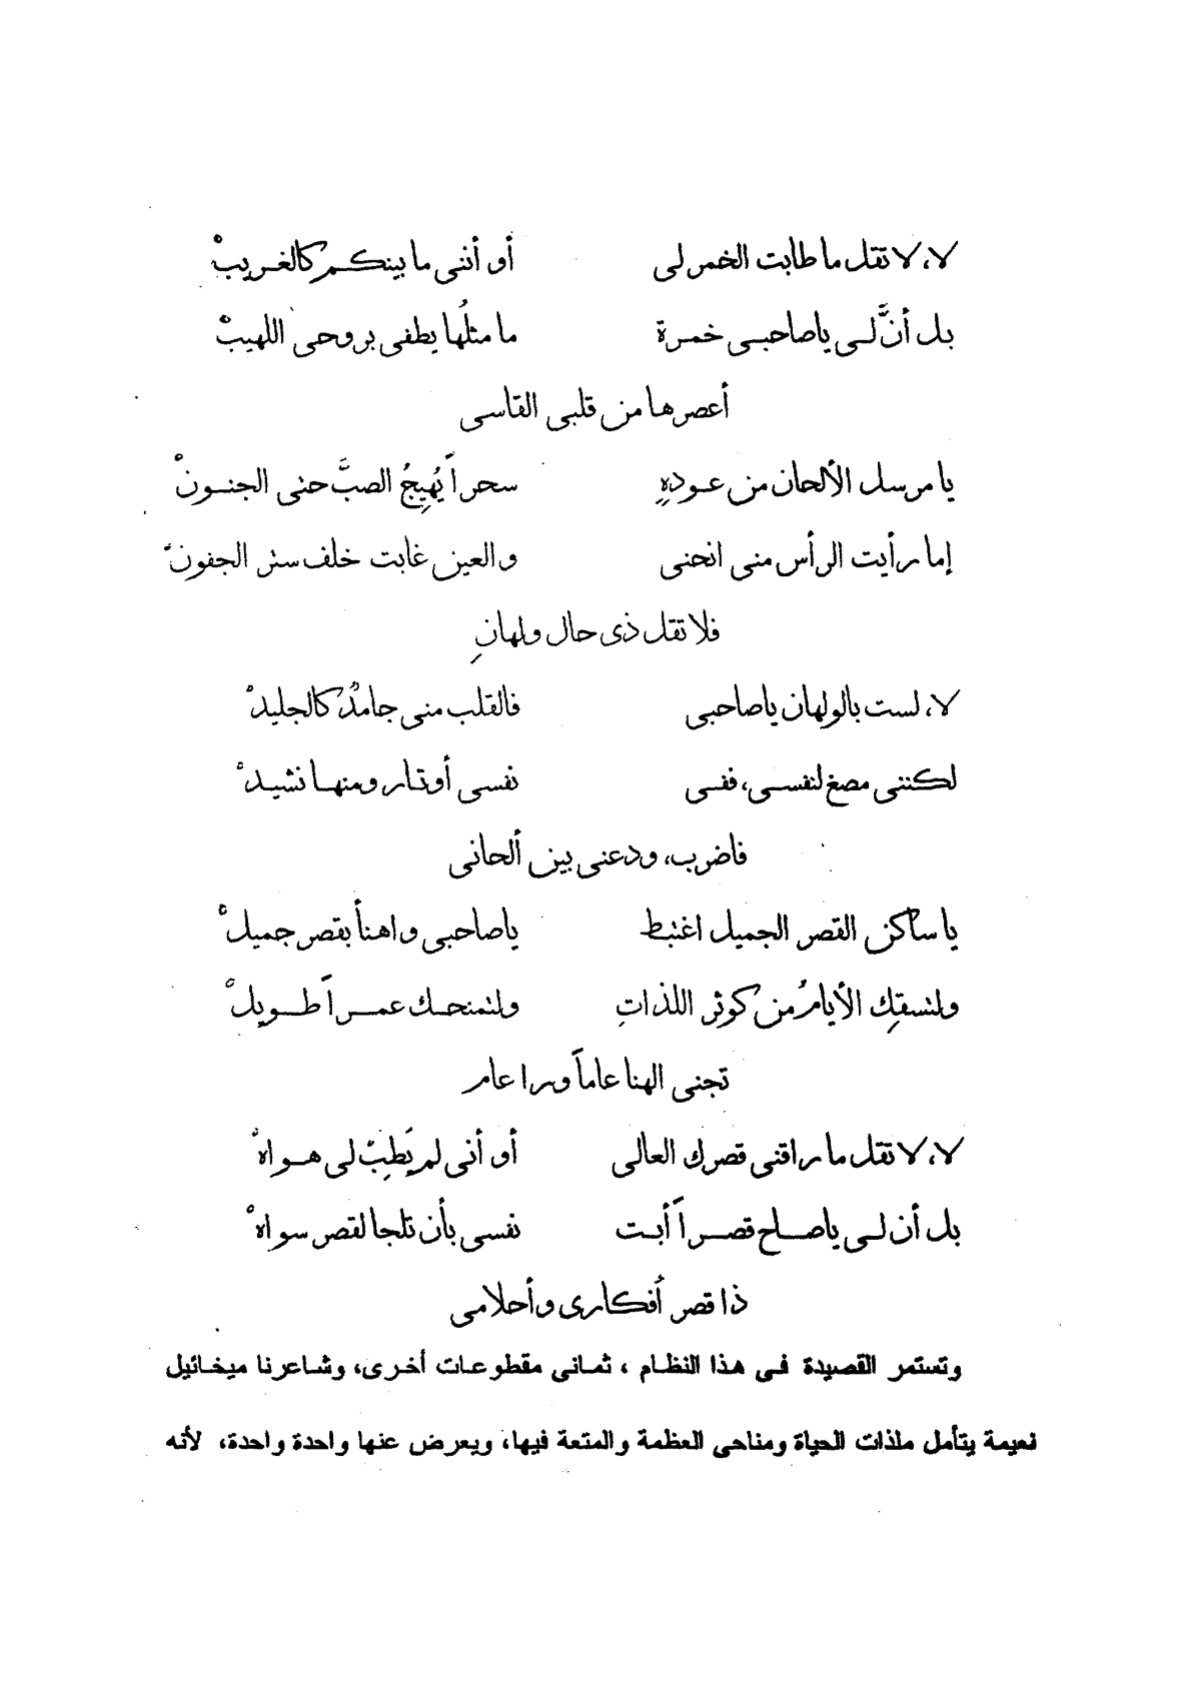 لا، لا تقل ما طابت الخمر لى أو أننى ما بينكم كالغريبْ
بل أنَّ لى يا صاحبى خمرة ما مثلُها يطفى بروحى اللهيبْ
أعصرها من قلبى القاسى
يا مرسل الألحان من عودهِ سحراً يُهيِجُ الصبَّ حتى الجنونْ
إما رأيت الرأس منى انحنى والعين غابت خلف ستر الجفونْ
فلا تقل ذى حال ولهانِ
لا، لست بالولهان يا صاحبى فالقلب منى جامدٌ كالجليدْ
لكننى مصغ لنفسى، ففى نفسى أوتار ومنها نشيدْ
فاضرب، ودعنى بين ألحانى
يا ساكن القصر الجميل اغتبط يا صاحبى واهنأ بقصر جميلْ
ولتسقِك الأيامُ من كوثر اللذاتِ ولتمنحك عمراً طويلْ
تجنى الهنا عاماً ورا عام
لا، لا تقل ما راقنى قصرك العالى أو أنى لم يَطِبْ لى هواهْ
بل أن لى يا صاح قصراً أبت نفسى بأن تلجا لقصر سواهْ
ذا قصر أفكارى وأحلامى
وتستمر القصيدة فى هذا النظام ، ثمانى مقطوعات أخرى، وشاعرنا ميخائيل
نعيمة يتأمل ملذات الحياة ومناحى العظمة والمتعة فيها، ويعرض عنها واحدة واحدة، لأنه